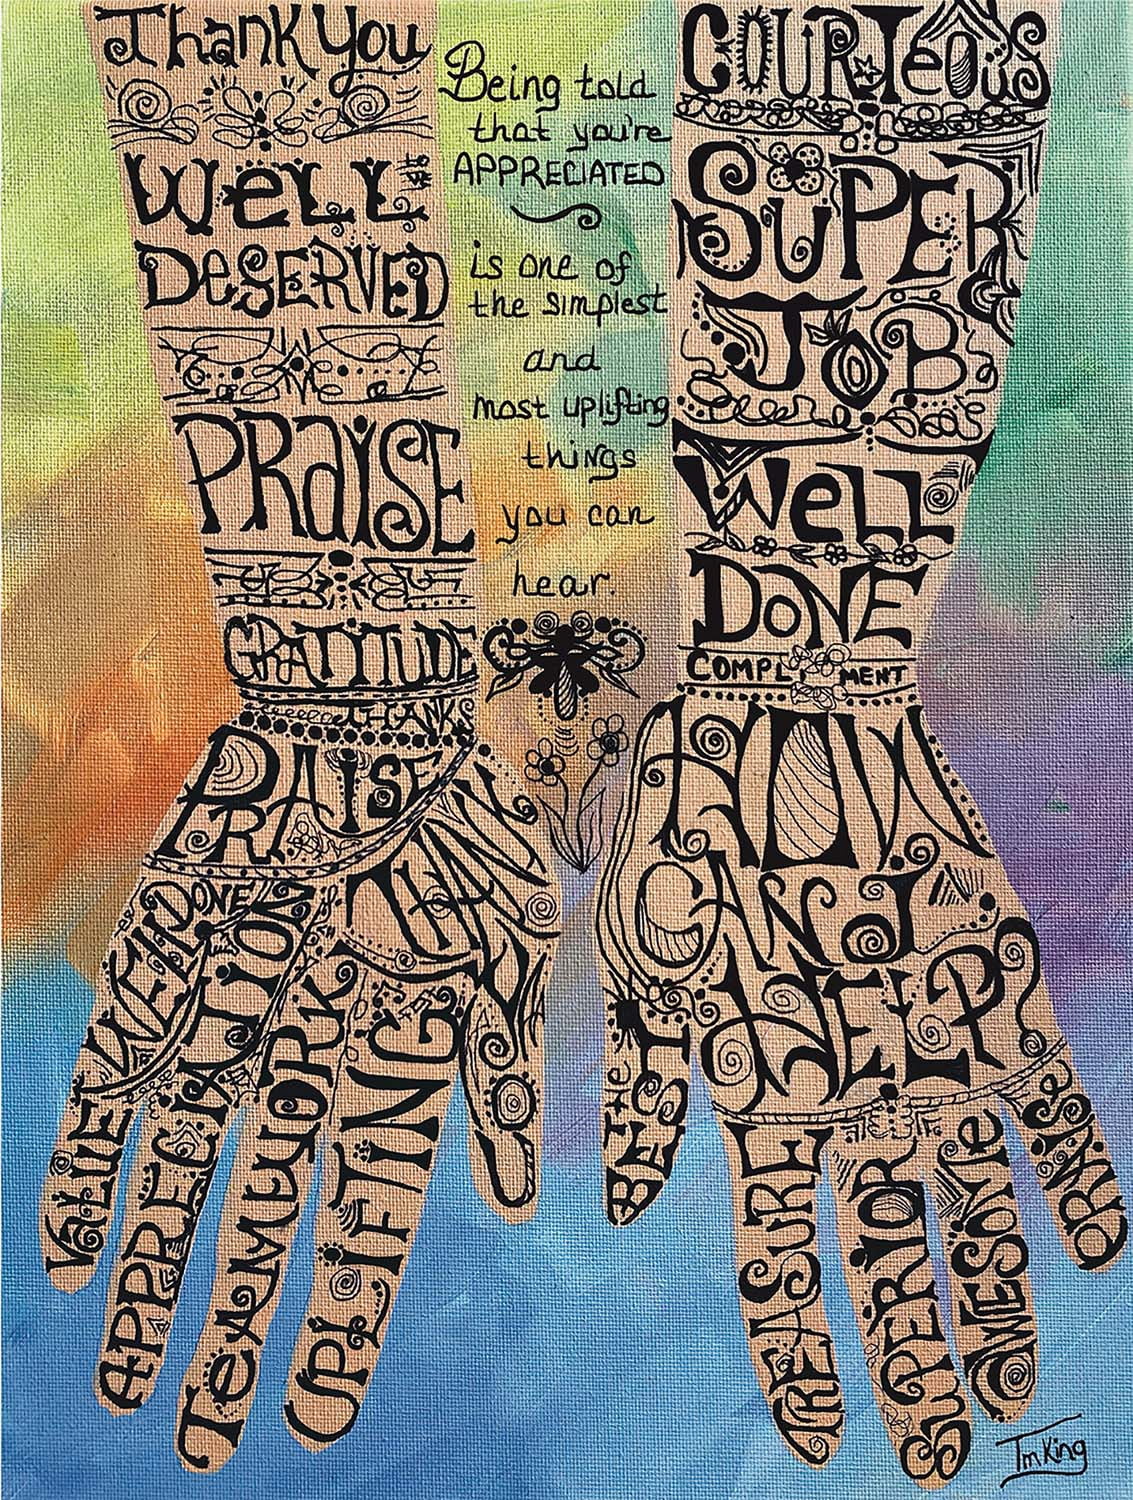 Thank You
WeLL
DeSeRVED
PRaISE
GRATITUDE
THANK
PRAISE
THANK
YOU
WELL DONE
VaLUE
APPRECIATION
TeAMWORK
UPLIFTING
Being told
that you're
APPRECIATED
is one of
the simplest
and
most uplifting
things
you can
hear.
COURTeOuS
SuPER
JOB
WeLL
DoNE
COMPLIMENT
HOW
CAN I
HELP
THE
BEST
TREASURE
SUPERIOR
AWESOMe
PRAISe
TmKing